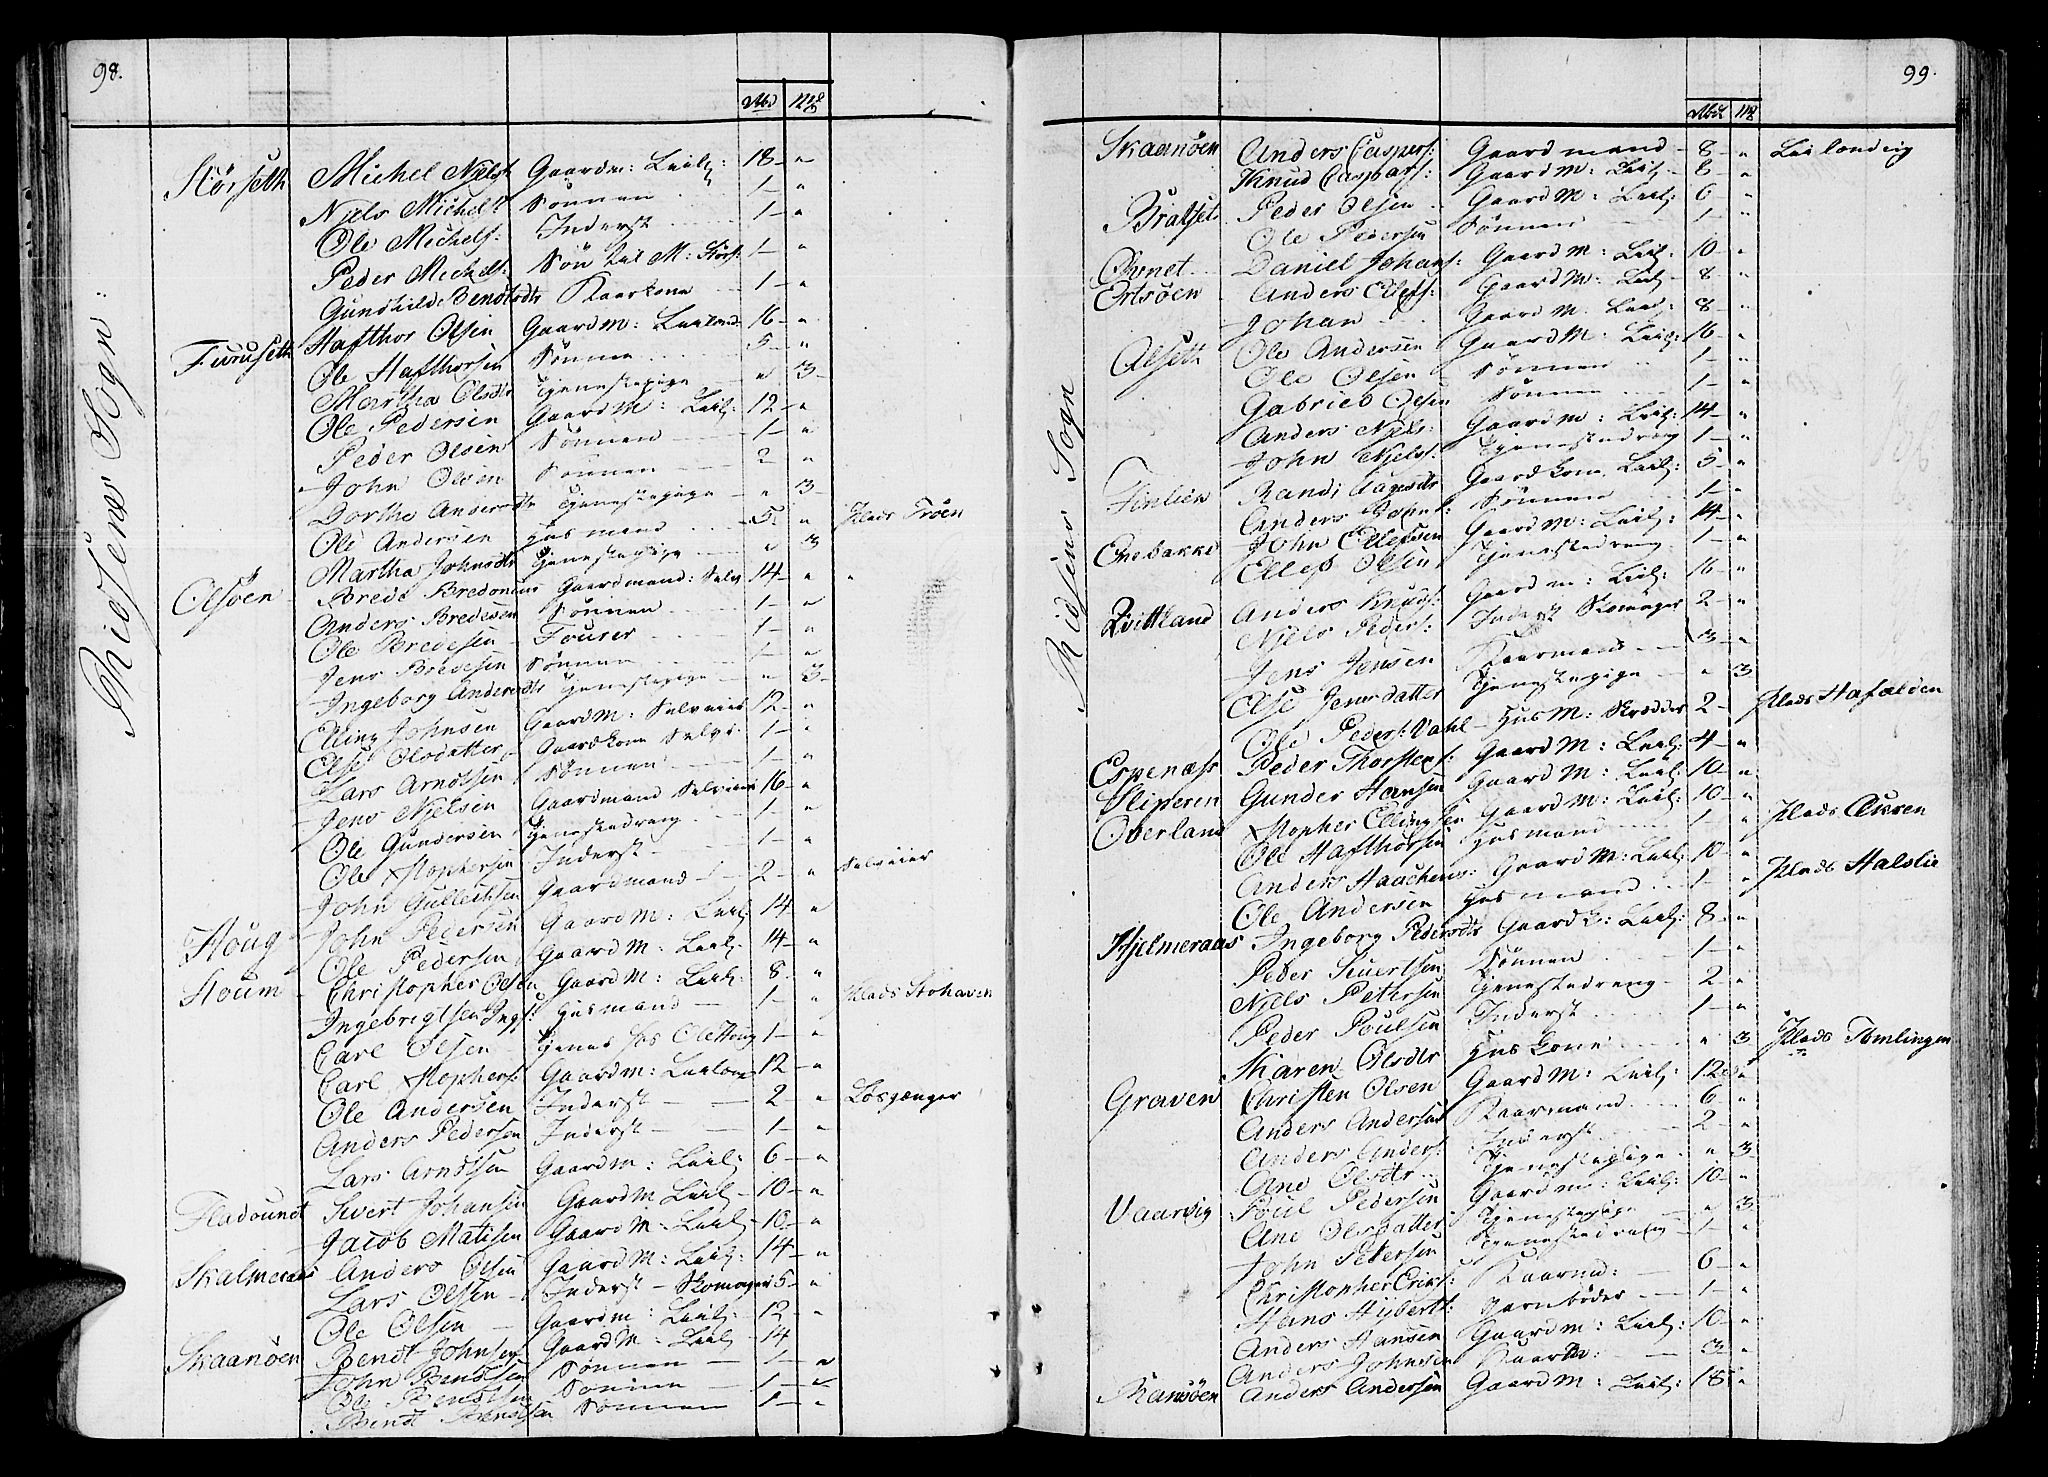 98.
Rbd mk
Thiesene Sogn
Størseth Michel Njels: Gaardm: Leil: 18 – "
Njels Michels: Sønnen 1 – "
Ole Michels: Inderst 1 – "
Peder Michels: Søn til M: Størs: 1 – "
Gunhild Bendtsdtr Kaarkone 1 – "
Furuseth Hafthor Olsen Gaardm: Leilend 16 – "
Ole Hafthorsen Sønnen 5 – "
Martha Olsdtr Tjenestepige " 3
Ole Pedersen Gaardm: Leil: 12 – "
Peder Olsen Sønnen 1 – "
John Olsen Sønnen 2 "
Dorthe Andersdtr Tjenestepige " 3
Ole Andersen Husmand 5 " Plads Trøen
Martha Johnsdtr Tjenestepige " 3
Olsøen Brede Bredenius Gaardmand: Selv 14 – "
Anders Bredesen Sønnen 1 – "
Ole Bredesen Fourer 1 – "
Jens Bredesen Sønnen 1 – "
Ingeborg Andersdtr Tjenestepige " 3
Elling Johnsen Gaardm: Selveier 12 – "
Else Olsdatter Gaardkone Selvs: 1 – "
Lars Arndtsen Sønnen 1 – "
Jens Njelsen Gaardmand Selveier 16 – "
Ole Gundersen Tjenestedreng 1 – "
Ole Xstophersen Inderst 1 – "
John Gulleichsen Gaardmand 2 – " Selveier
Houg John Pedersen Gaardm: Leil: 14 – "
Ole Pedersen Gaardm: Leil: 14 – "
Houm Christopher Olsen Gaardm: Leil: 8 "
Ingebrigtsen Ings: Husmand 1 – " Plads Stohaven
Carl Olsen Tjener hos Ole Houg 1 – "
Carl Xstophers: Gaardm: Leilend 12 – "
Ole Andersen Inderst 2 – " Løsgænger
Anders Pedersen Inderst 1 – "
Lars Arndtsen Gaardm: Leil: 6 – "
Fladoundt Sivert Johansen Gaardm Leil 10 – "
Jacob Matisen Gaardm: Leil 10 – "
Skalmeraas Anders Olsen Gaardm: Leil: 14 – "
Lars Olsen Inderst – Skomager 5 – "
Ole Olsen Gaardm: Leil: 12 – "
Skaanøen Bendt Johnsen Gaardm: Leil 14
John Bendtsen Sønnen 1 – "
Ole Bendtsen Sønnen 1 – "
Bendt Bendtsen Sønnen 1 – "
99.
Rbd mk
Ridsene Sogn
Skaanøen Anders Caspers: Gaardmand 8 – " Leilendig
Knud Caspars: Gaardm: Leil 8 – "
Bratset Peder Olsen Gaardm: Leil: 6 – "
Ole Pedersen Sønnen 1 – "
Ormet Daniel Johans: Gaardm: Leil: 10 – "
Ortsøen Anders Ellefs: Gaardm: Leil 8 – "
Johan Gaardm: Leil: 8 – "
Alseth Ole Andersen Gaardm: Leil: 16 – "
Ole Olsen Sønnen 1 – "
Gabriel Olsen Sønnen 1 – "
Anders Njels: Gaardm: Leil: 14 – "
John Njels: Tjenestedreng 1 – "
Finlien Randi Aagesdtr Gaardkone Leil: 5 – "
Anders Sønnen 1 – "
Enebakke John Ellefsen Gaardm: Leil: 14 – "
Ellef Olsen Tjenestedreng 1 – "
Qvitland Anders Knuds: Gaardm: Leil: 16 – "
Njels Peders: Inderst Skomager 2 – "
Jens Jensen Kaarmand 3 – "
Else Jensdatter Tjenestepige " 3
Ole Peders: Vahl Husm: Skrædder 2 – Plads Hafalden
Espenæss Peder Thorstens: Gaardm: Leil: 4 – "
Sliperen Gunder Hansen Gaardm: Leil: 10 – "
Overland Xstopher Ellingsen Gaardm: Leil: 10 – "
Ole Hafthorsen Husmand 1 – " Plads Ækren
Anders Haachens: Gaardm: Leil: 10 – "
Ole Andersen Husmand 1 – " Plads Halslie
Hjelmeraas Ingeborg Pedersdtr Gaardk: Leil: 8 – "
Peder Siuertsen Sønnen 1 – "
Njels Petersen Tjenestedreng 2 – "
Peder Poulsen Inderst 1 – "
Karen Olsdtr Huskone " 3 Plads Tømlingen
Graven Christen Olsen Gaardm: Leil: 12 "
Anders Andersen Kaarmand 6 – "
Anders Anders: Inderst 2 – "
Ane Olsdtr Tjenestepige " 3
Vaarvig Poul Pedersen Gaardm: Leil: 10 – "
Ane Olsdatter Tjenestepige " 3
John Petersen Tjenestedreng 1 – "
Christopher Eriks: Kaarm: 6 – "
Hans Hyberts: Garnbøder 1 – "
Anders Hansen Gaardm: Leil: 10 – "
Anders Johnsen Kaarm: 3 – "
Ramsøen Anders Andersen Gaardm: Leil: 18 "